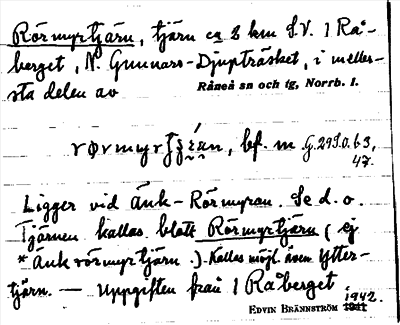 Rörmyrtjärn, tjärn ca 2 km S.V. 1 Rå-
berget, N. Gunnars-Djupträsket, i mellers-
sta delen av
Råneå sn och tg, Norrb. l.
bf. m G.29S.0.63,
47.
Ligger vid Änk-Rörmyran. Se d. o.
Tjärnen kallas blott Rörmyrtjärn (ej
*Änkrörmyrtjärn.) Kallas möjl. även Ytter-
tjärn. — Uppgiften från 1 Råberget
1942.
EDVIN BRÄNNSTRÖM 1941